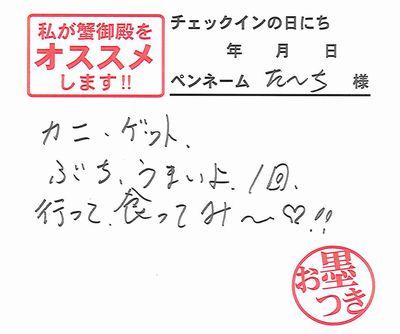 私が蟹御殿を
オススメ
します!!
チェックインの日にち
年 月 日
ペンネーム た〜ち 様
カニ、ゲット、
ぶち、うまいよ、1回、
行って、食ってみ〜♡!!
お墨
つき